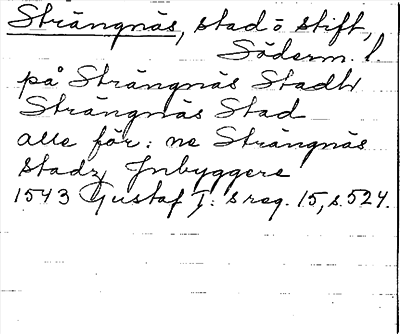 Strängnäs, stad o stift,
Söderm. l.
på Strängnäs Stadh
Strängnäs Stad
alle för: ne Strängnäs
stadz Jnbyggere
1543 Gustaf I: s reg. 15, s. 524.